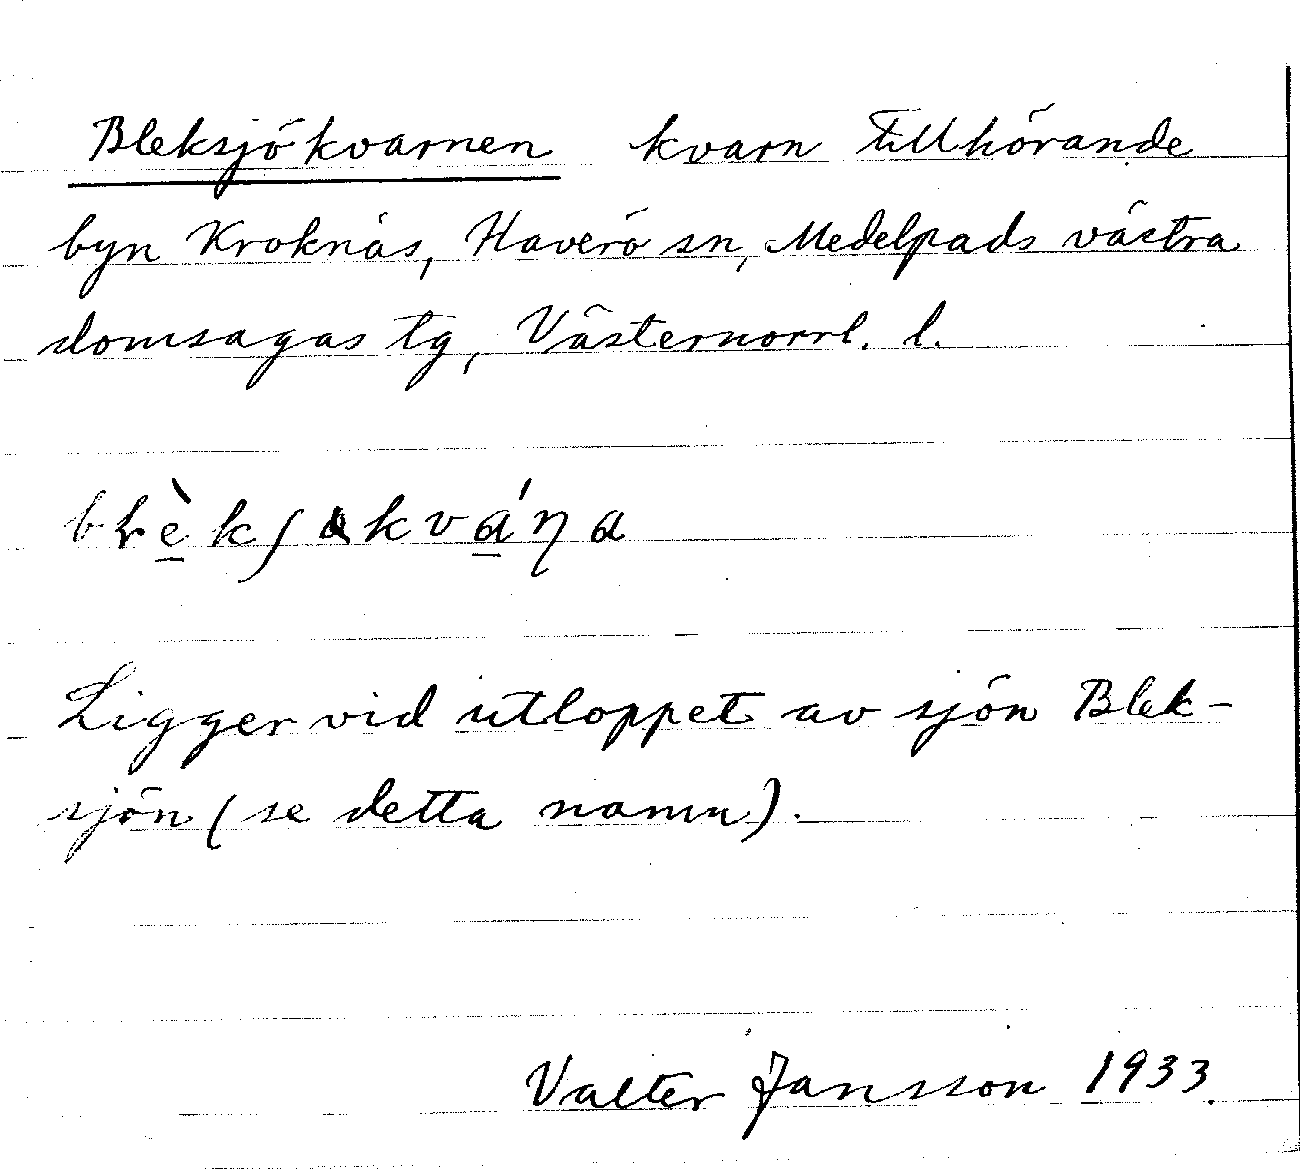 Bleksjökvarnen kvarn tillhörande
byn Kroknäs, Haverö sn, Medelpads västra
domsagas tg, Västernorrl. l.
Ligger vid utloppet av sjön Blek-
sjön (se detta namn).
Valter Jansson 1933.